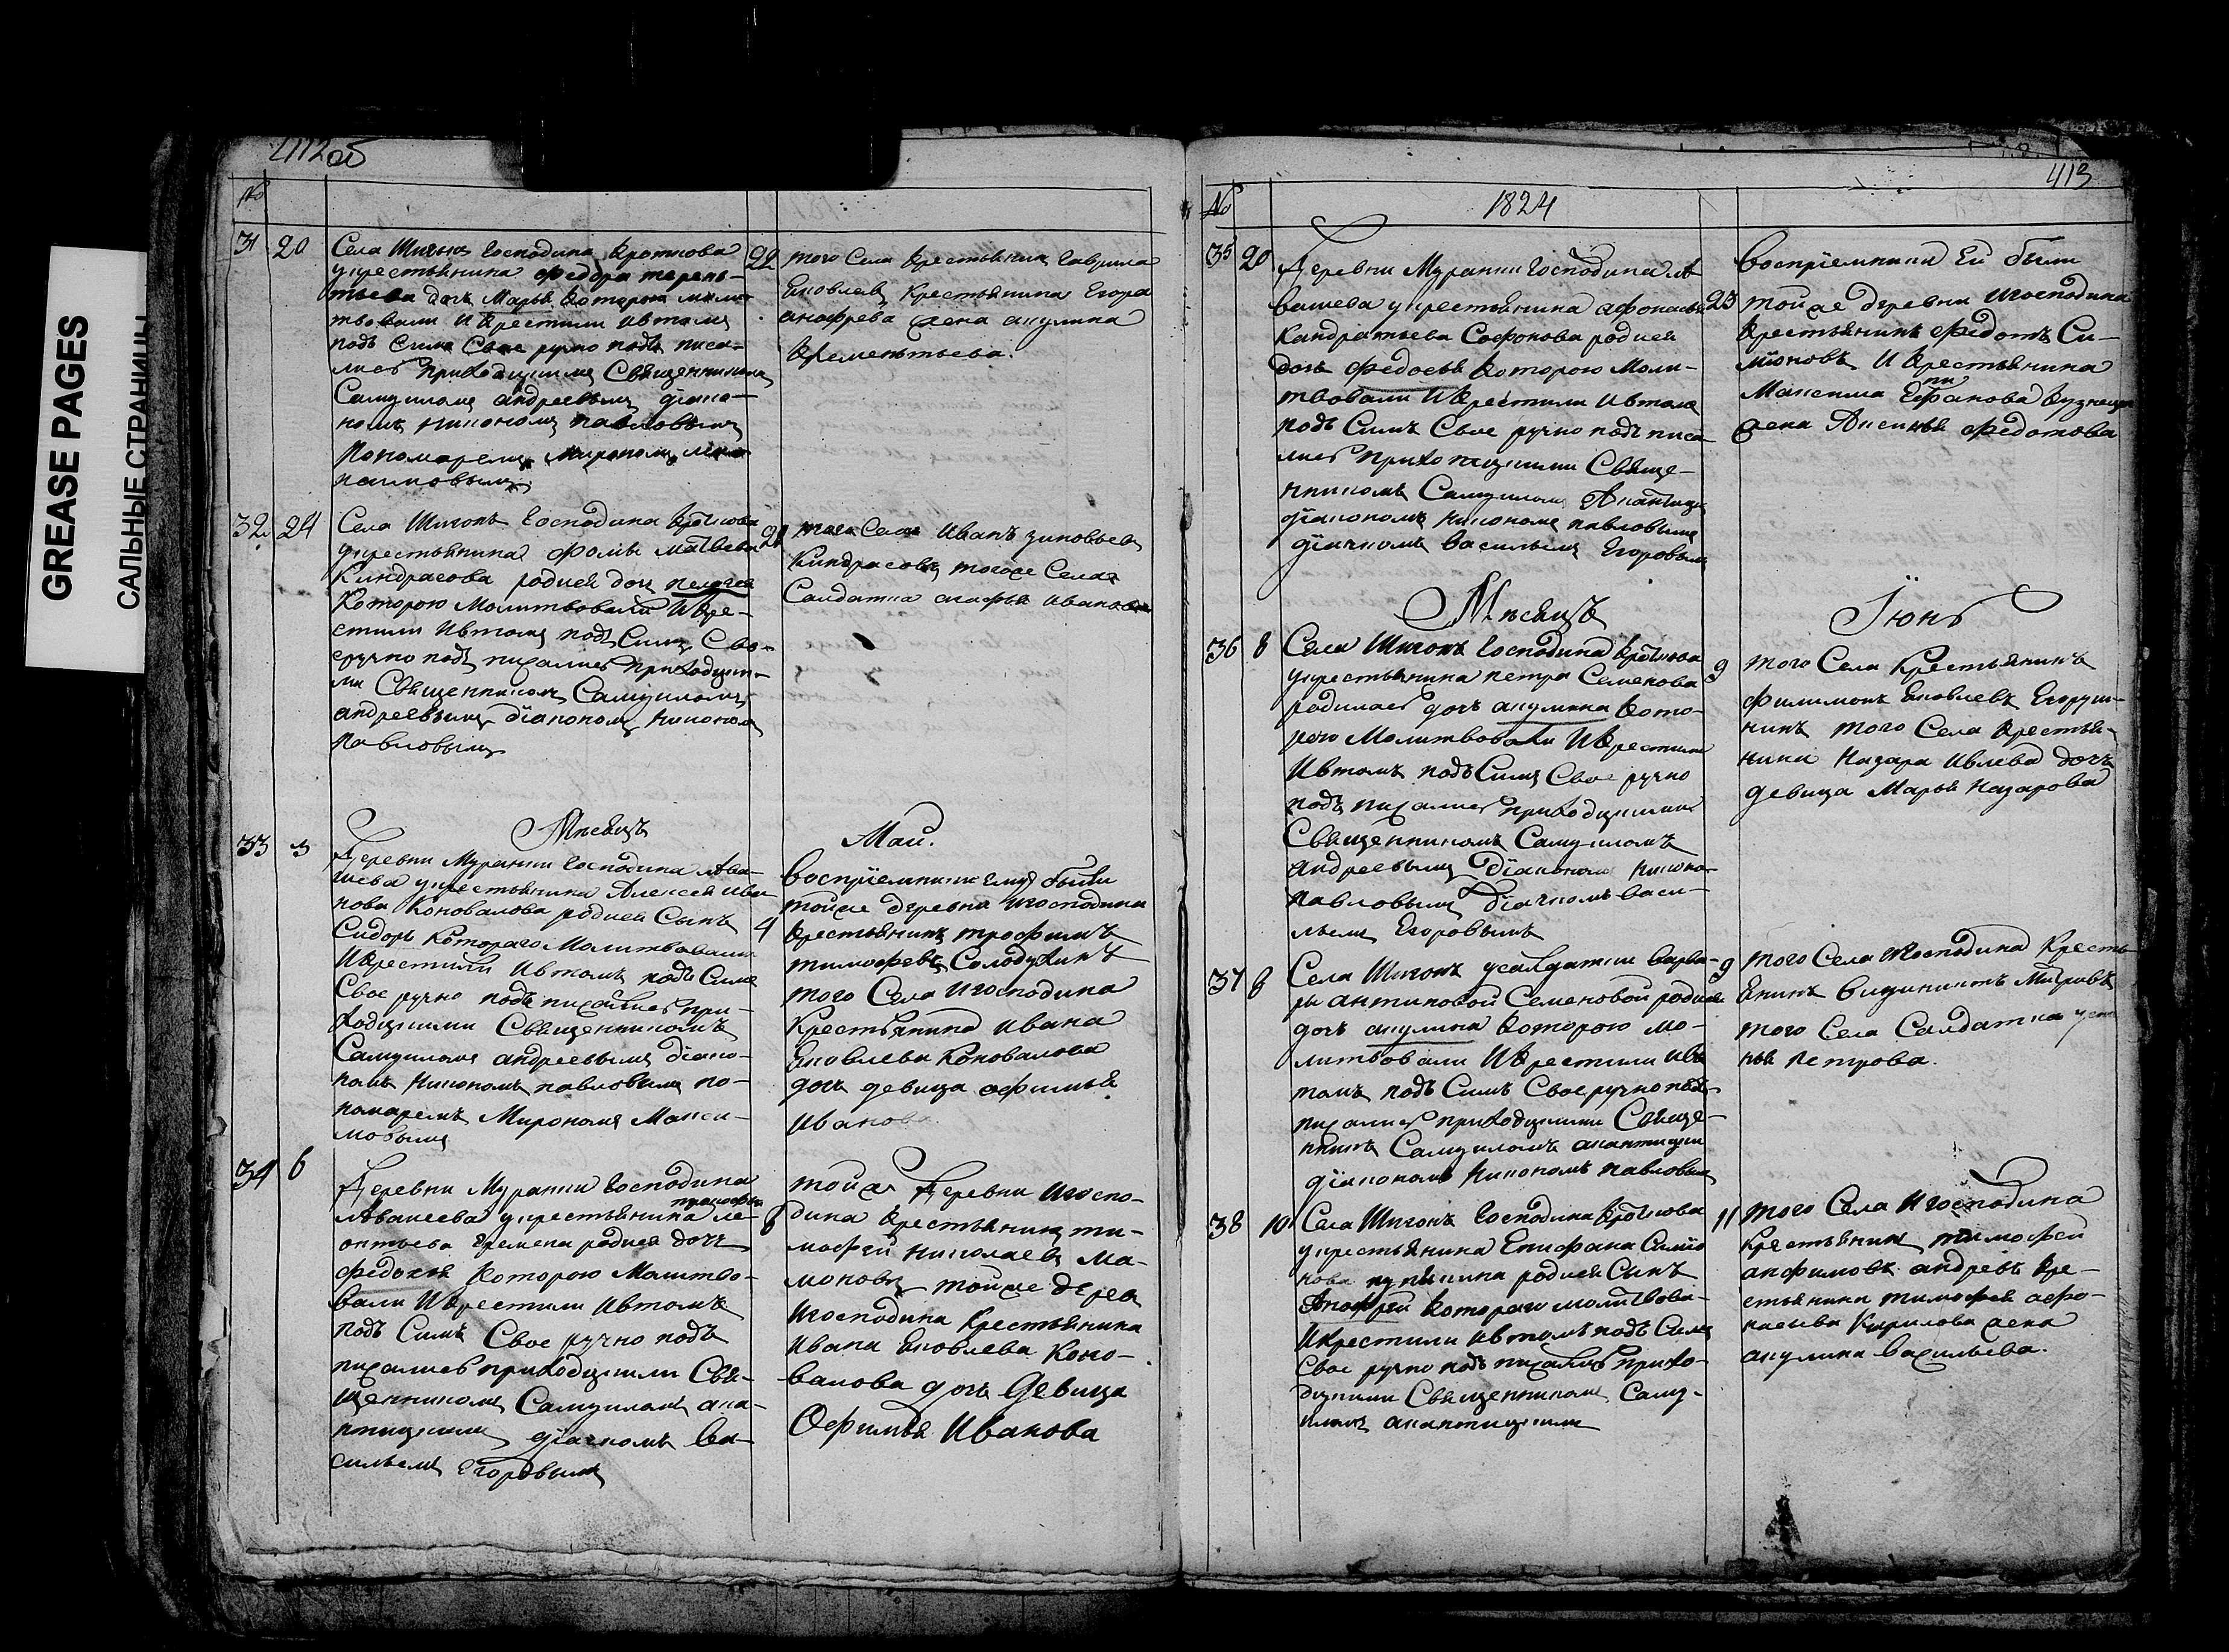 GREASE PAGES
САЛЬНЫЕ СТРАНИЦЫ
412 об
№
31 20
Села Шигонъ Господина Кроткова
у крестьянина Федора терень-
тьева дочь Марья которою молит
твовали и крестили и втомъ
подъ симъ Свое ручно подъ писа-
лись приходящими Священникомъ
Самуиломъ андреевымъ діако-
номъ никономъ павловымъ
Пономаремъ мирономъ
22 того Села крестьянин гаврила
Яковлевъ крестьянина Егора
анофрева жена акулина
32 24
Села Шигонъ Господина Кроткова
у крестьянина Фомы Матвева
Киндрасова родися доч пелагея
Которою Молитвовали и кре-
стили и втомъ подъ Симъ Сво-
еручно подъ писались приходящи-
ми Священникомъ Самуиломъ
андреевымъ діакономъ никономъ
павловымъ
того Села Иванъ зиновьевъ
Киндрасовъ того же Села
Салдатка агафья иванова
Месяцъ Маи.
33 3
Деревни Муранки Господина Ава-
шева у крестьянина Алексея ива
нова Коновалова родися Сынъ
Сидоръ Котораго Молитвовали
и крестили и втомъ подъ Симъ
Свое ручно подъ писались при-
ходящими Священникомъ
Самуиломъ андреевымъ діако-
номъ никономъ павловымъ по-
номаремъ Мирономъ Макси-
мовымъ
воспріемники ему были
тойже деревни игосподина
4 крестьянинъ трофимъ
тимофевъ Солодухинъ
того Села игосподина
Крестьянина ивана
Яковлева Коновалова
дочь девица афимья
Иванова
34 6
Деревни Муранки Господина
Авашева у крестьянина ле-
онтьева Еремена родися дочь
федосья которою Молитво-
вали и крестили и втомъ
подъ Симъ Свое ручно подъ
писались приходящими Свя-
щенникомъ Самуиломъ
діачкомъ Ва-
сильемъ Егоровымъ
тойже Деревни игоспо-
6 дина крестьянинъ ти-
мофей николаевъ Ма-
моновъ тойже дерев
игосподина крестьянина
Ивана Яковлева Коно-
валова дочь девица
Офимья Иванова
413
№ 1824
35 20
Деревни Муранки Господина А
вашева у крестьянина афонасья
Кандратьева Софонова родися
дочь федосья которою Моли-
твовали и крестили и втомъ
подъ Симъ Свое ручно подъ писа-
лись Священ-
никомъ Самуиломъ
діакономъ никономъ павловымъ
діачкомъ васильемъ Егоровымъ
воспріемники Ей были
23 тойже деревни игосподина
крестьянинъ федотъ Си-
міоновъ и крестьянина
Максима Епифанова кузнецова
жена Аксинья федотова
Месяцъ Іюнь
36 8 Села Шигонъ Господина Кроткова
у крестьянина петра Семенова
родилась дочь акулина кото-
рою Молитвовали и крестили
И втомъ подъ Симъ Свое ручно
подъ писались приходящими
Священникомъ Самуиломъ
андреевымъ діакономъ никоно
павловымъ діачкомъ васи-
льемъ Егоровымъ
9 того Села Крестьянинъ
Филимонъ Яковлевъ Егоруш-
кинъ того Села крестья-
нина Назара Ивлева дочь
девица Марья Назарова
37 8 Села Шигонъ у салдатки варва-
ры антиповой Семеновой родися
дочь акулина которою мо-
литвовали и крестили ивъ
томъ подъ Симъ Своеручно подъ-
писались приходящими Священ-
никъ Самуиломъ
діакономъ Никономъ павловымъ
9 того Села игосподина Кресть
янинъ
того Села Салдатка
петрова.
38 10 Села Шигонъ Господина Кроткова
у крестьянина Епифана Симіо
нова родися Сынъ
Анофрей которого молитвова-
И крестили и втомъ подъ Симъ
Свое ручно подъ писались прихо-
дящими Священникомъ Саму-
иломъ
11 того Села игосподина
крестьянин тимофей
анфимовъ андревъ кре-
стьянина тимофея афо-
насьева Кирилова жена
акулина васильева.